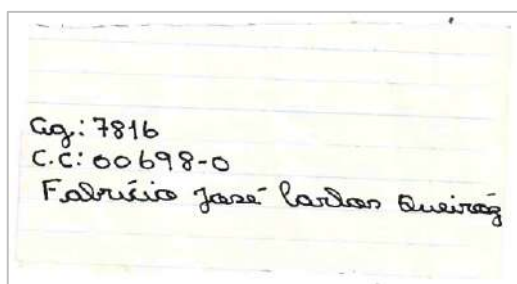 Ag.: 7816
C.C: 00698-0
Fabrício José Carlos Queiróz